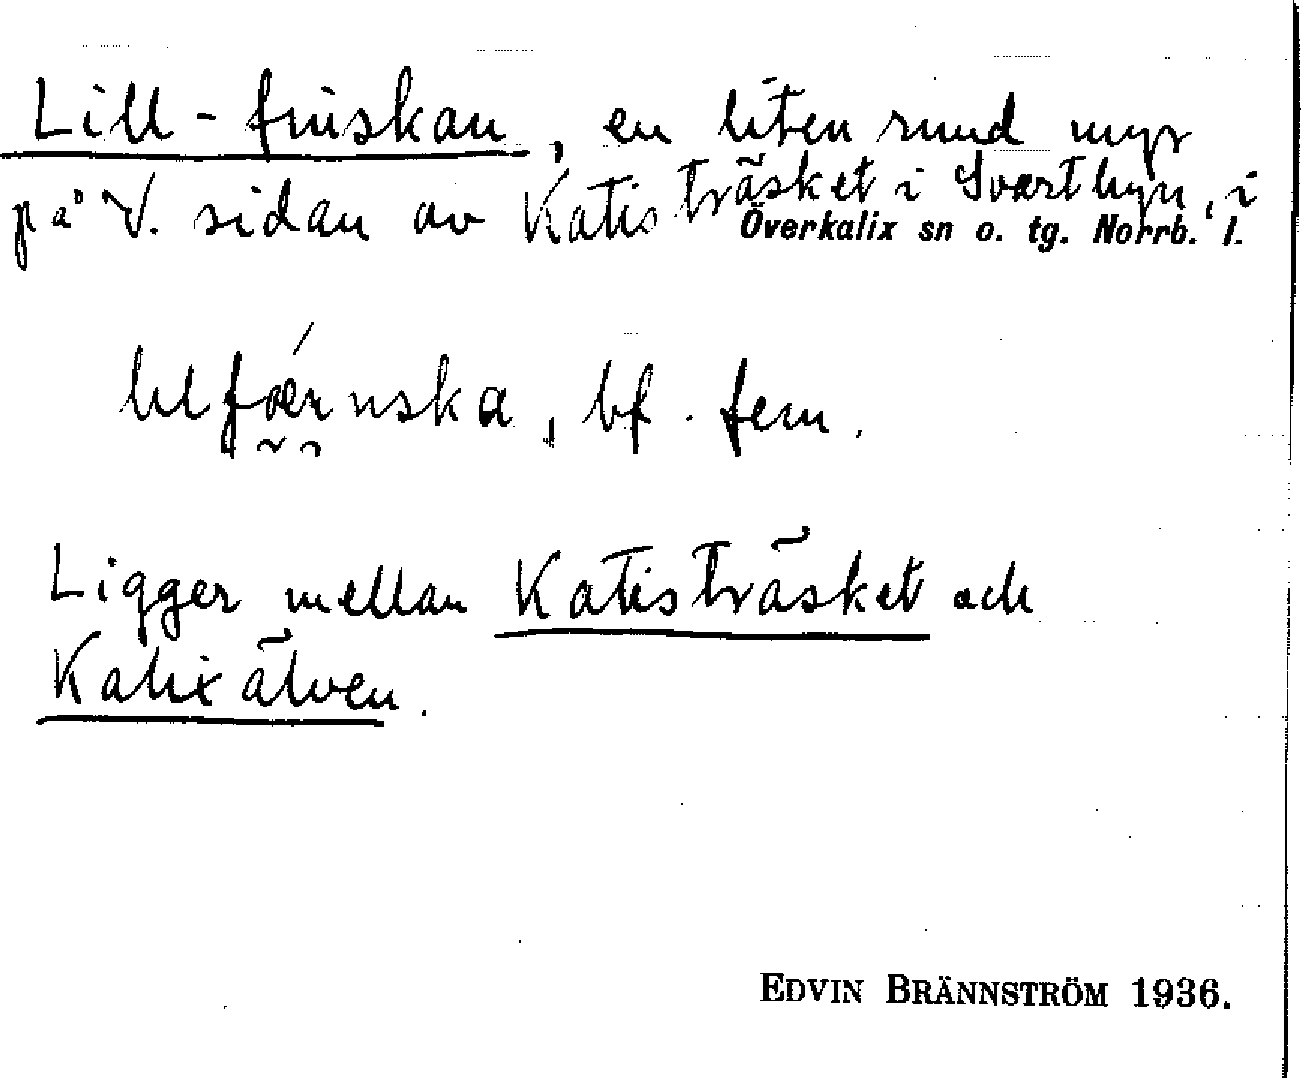 Lill-finskan, en liten rund myr
på V. sidan av Katisträsket i Svartbyn, i
Överkalix sn o. tg. Norrb. l.
bf. fem.
Ligger mellan Katisträsket och
Kalixälven.
EDVIN BRÄNNSTRÖM 1936.